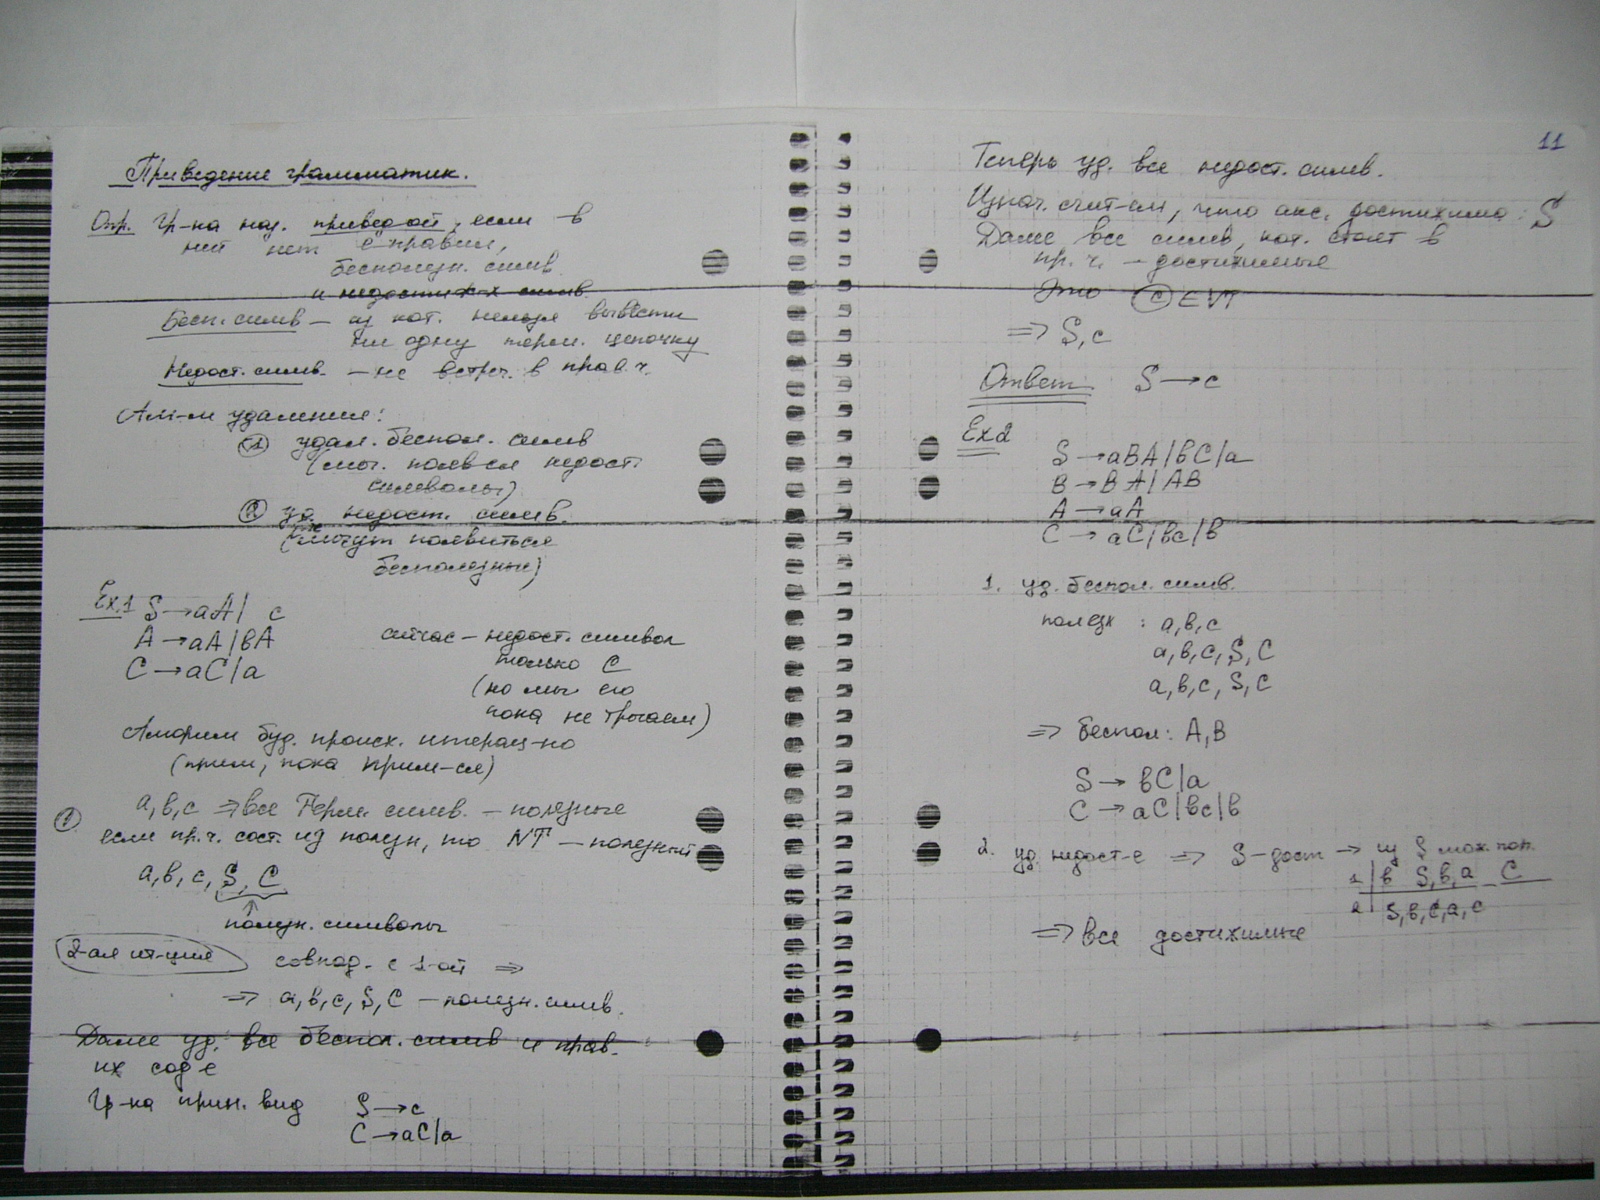 Приведение грамматик.
Опр. Гр-ка наз. привед-ой, если в
ней нет ε правил,
бесполезн. симв
и недостиж-х симв.
Бесп. симв – из кот. нельзя вывести
ни одну терм. цепочку
Недост. симв. – не встреч. в прав. ч.
Алг-м удаления:
① удал. беспол. симв
(мог. появ-ся недост.
символы)
② уд. недост. симв.
(не могут появиться
бесполезные)
Ex.1 S → aA | c
A → aA | bA
C → aC | a
сейчас – недост. символ
только C
(но мы его
пока не трогаем)
Алгоритм буд. происх. итерац-но
(прим, пока прим-ся)
① a, b, c ⇒ все Терм. симв. – полезные
если пр. ч. сост. из полезн, то NT – полезный
a, b, c, S, C
полезн. символы
2-ая ит-ция совпад. с 1-ой ⇒
⇒ a, b, c, S, C – полезн. симв.
Далее уд. все беспол. симв и прав.
их сод-е
Гр-ка прин. вид S → c
C → aC | a
11
Теперь уд. все недост. симв.
Изнач. счит-ем, что акс. достижима: S
Далее все симв, кот. стоят в
пр. ч. – достижимые
Это c ∈ VT
⇒ S, c
Ответ S → c
Ex2
S → aBA | bC | a
B → BA | AB
A → aA
C → aC | bc | b
1. уд. беспол. симв.
полезн : a, b, c
a, b, c, S, C
a, b, c, S, C
⇒ беспол: A, B
S → bC | a
C → aC | bc | b
2. уд. недост-е ⇒ S – дост → из S мож. поп.
1 | b S, b, a C
2 | S, b, C, a, c
⇒ все достижимые